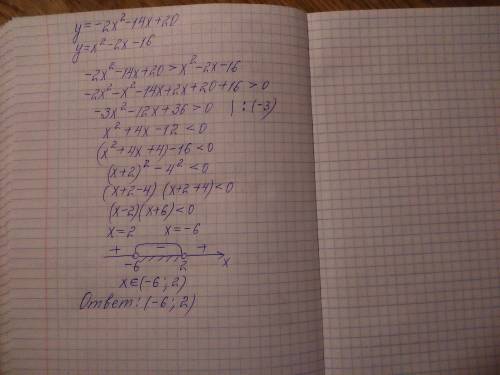 y=-2x²-14x+20
y=x²-2x-16
-2x²-14x+20>x²-2x-16
-2x²-x²-14x+2x+20+16>0
-3x²-12x+36>0 |:(-3)
x²+4x-12<0
(x²+4x+4)-16<0
(x+2)²-4²<0
(x+2-4)(x+2+4)<0
(x-2)(x+6)<0
x=2 x=-6
+ - +
-6 2 x
x∈(-6;2)
Ответ: (-6;2)